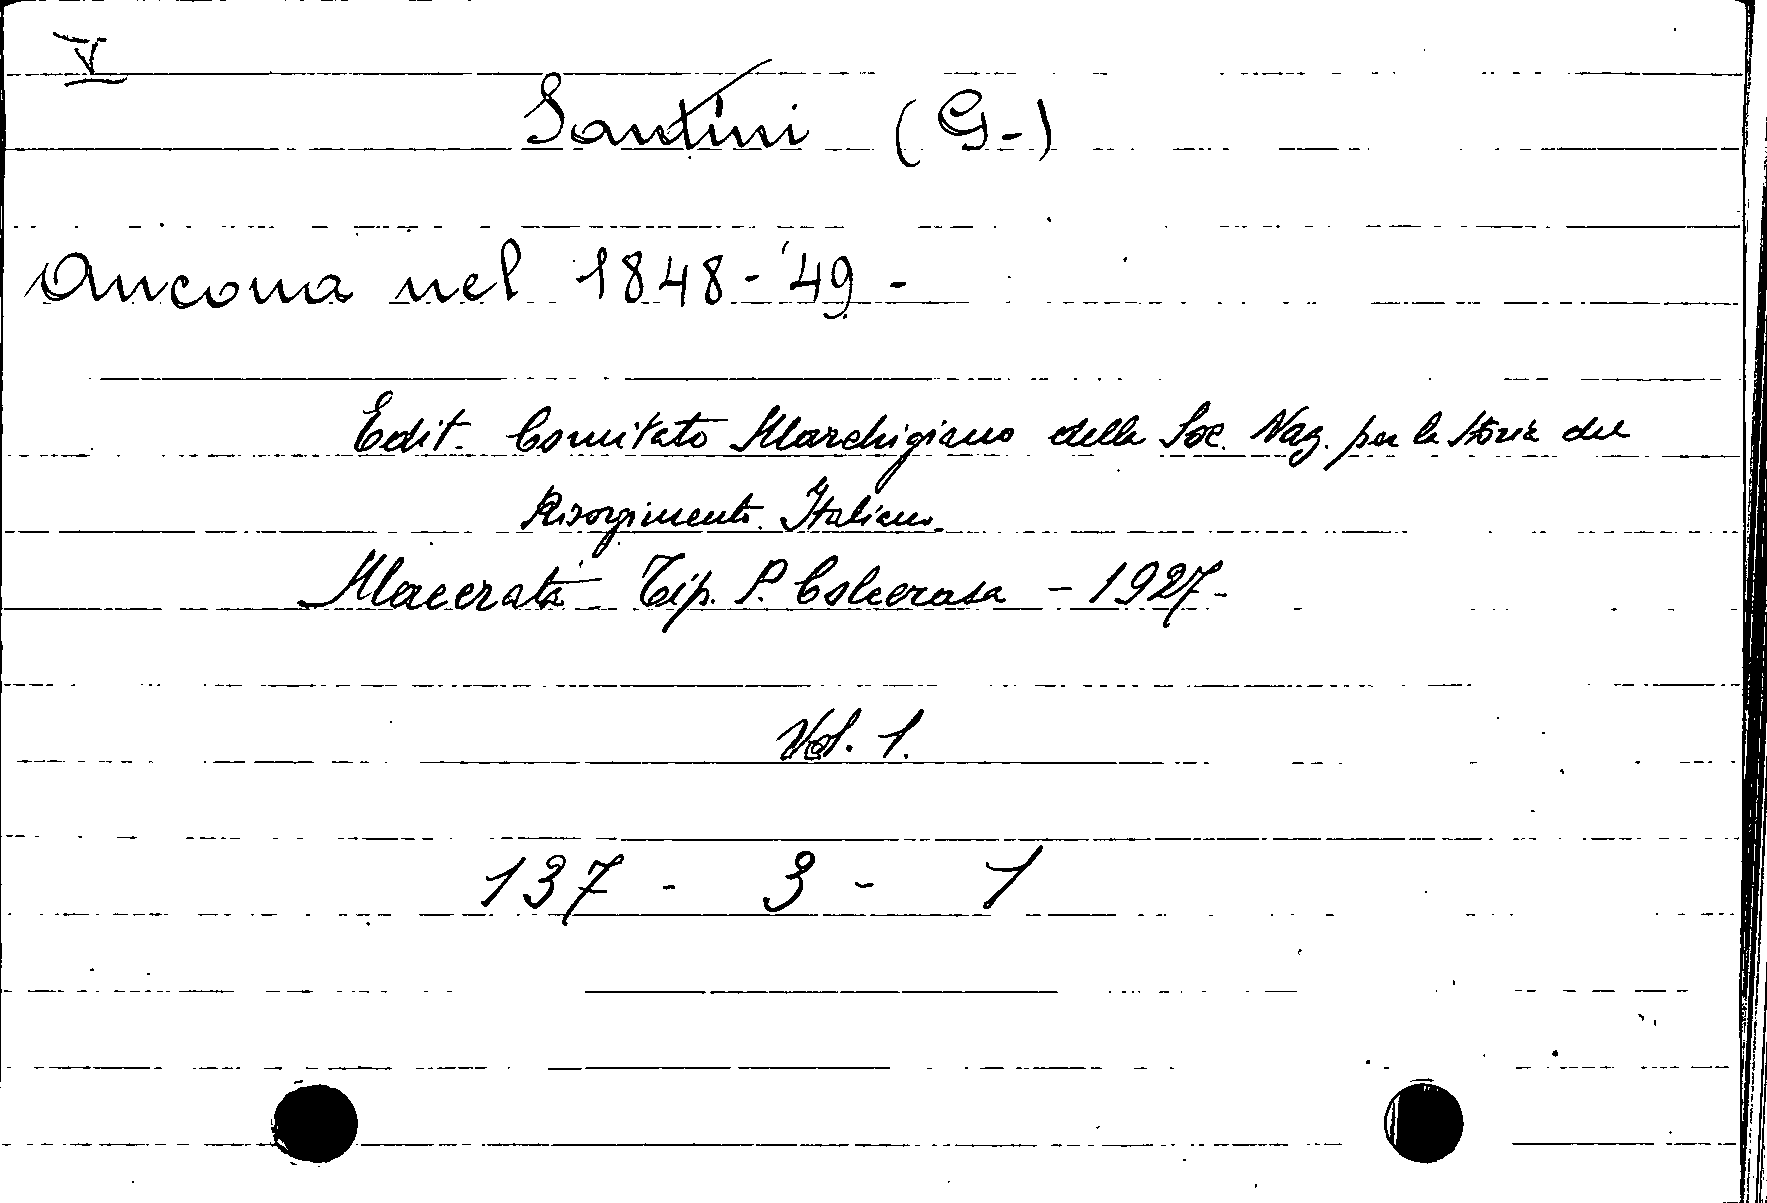 V
Santini (G-)
Ancona nel 1848-'49-
Edit. Comitato Marchigiano della Soc. Naz. per la storia del
Risorgimento Italiano.
Macerata Tip. P. Colcerasa - 1927-
Vol. 1.
137 - 3 - 1